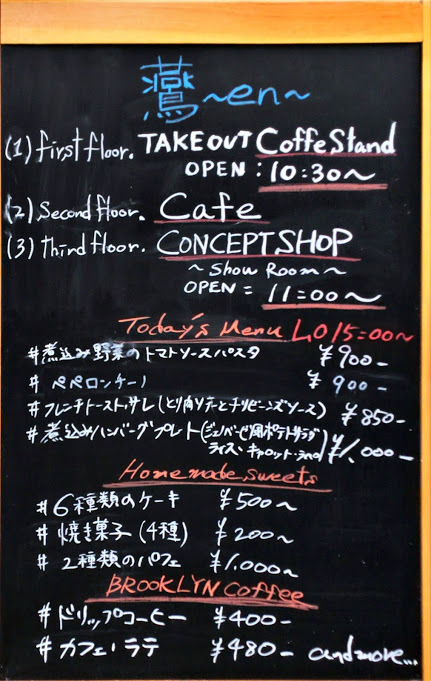 ~en~
(1) first floor. TAKEOUT Coffe Stand
OPEN : 10:30~
(2) Second floor. Cafe
(3) third floor. CONCEPT SHOP
~ Show Room ~
OPEN = 11=00~
Today's Menu L.O 15=00~
#煮込み野菜のトマトソースパスタ ¥900-
# ペペロンチーノ ¥900-
#フレンチトースト,サレ(とり肉ソテーとチリビーンズソース) ¥850-
#煮込みハンバーグプレート(ジェノベーゼ風ポテトサラダ
ライス・キャロット・ラペ) ¥1,000-
Homemade sweets
#6種類のケーキ ¥500~
#焼き菓子(4種) ¥200~
# 2種類のパフェ ¥1,000~
BROOKLYN Coffee
#ドリップコーヒー ¥400-
# カフェ・ラテ ¥480- and more...